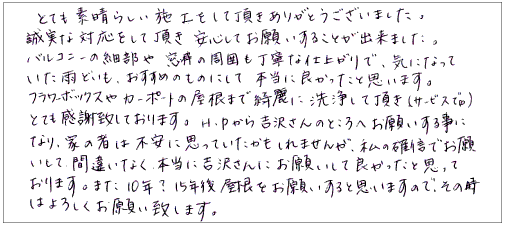 とても素晴らしい施工をして頂きありがとうございました。
誠実な対応をして頂き安心してお願いすることが出来ました。
バルコニーの細部や窓枠の周囲も丁寧な仕上がりで、気になって
いた雨どいも、おすすめのものにして本当に良かったと思います。
フラワーボックスやカーポートの屋根まで綺麗に洗浄して頂き(サービスで!!)
とても感謝致しております。H.Pから吉沢さんのところへお願いする事に
なり、家の者は不安に思っていたかもしれませんが、私の確信でお願
いして、間違いなく本当に吉沢さんにお願いして良かったと思って
おります。また10年?15年後屋根をお願いすると思いますので、その時
はよろしくお願い致します。